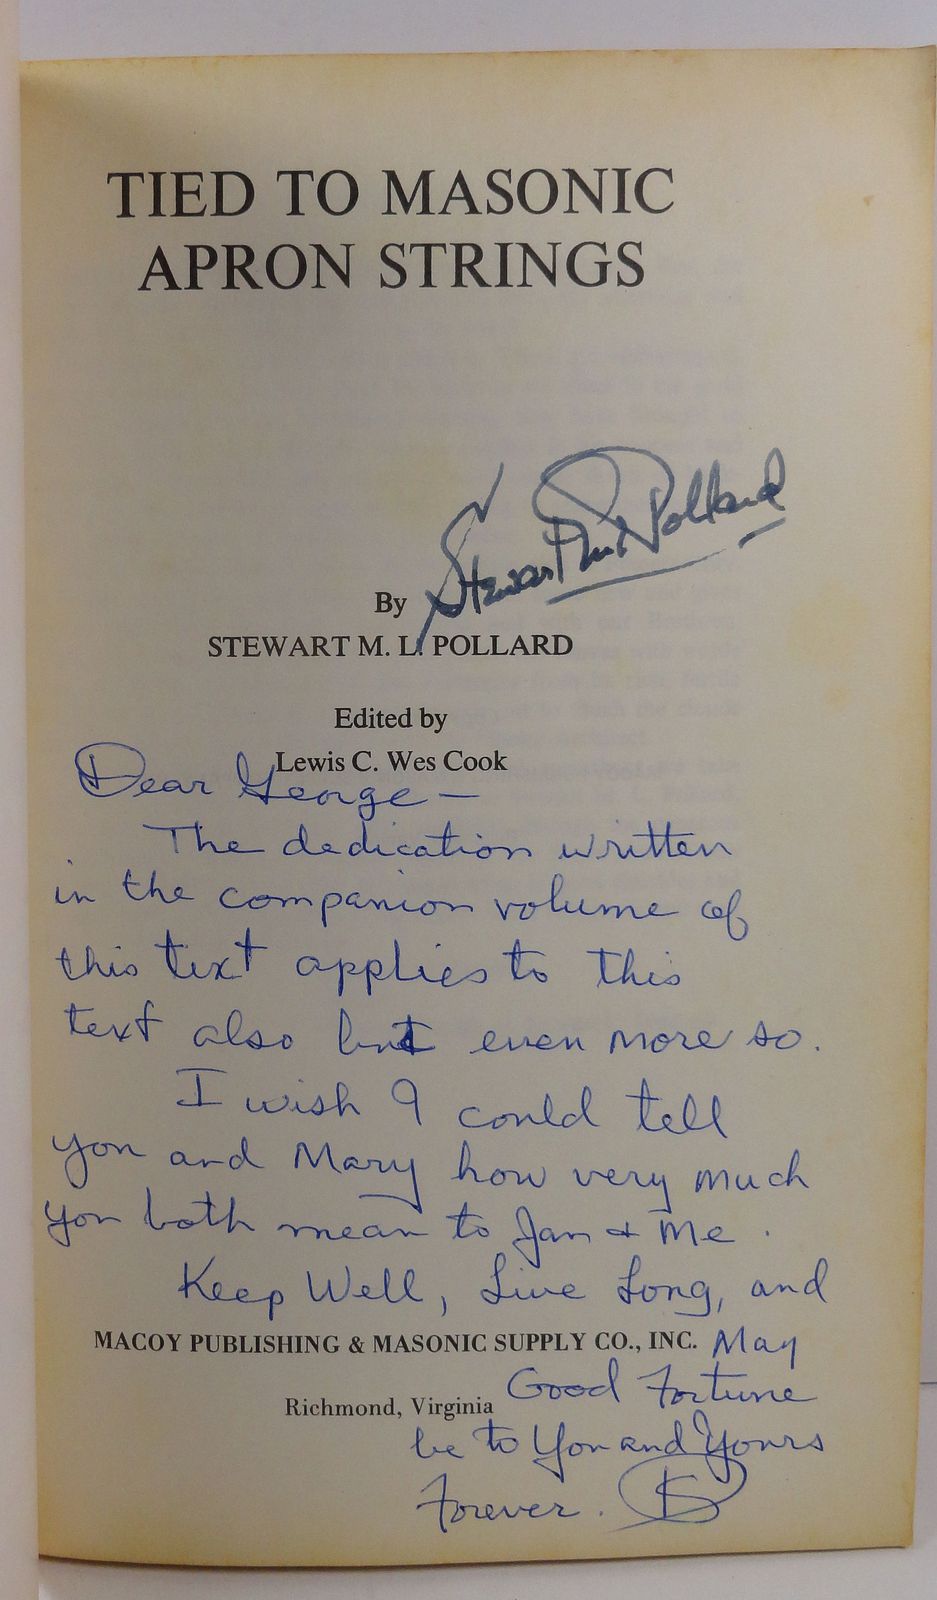 TIED TO MASONIC
APRON STRINGS
Stewart M L Pollard
By
STEWART M. L. POLLARD
Edited by
Lewis C. Wes Cook
Dear George —
The dedication written
in the companion volume of
this text applies to this
text also but even more so.
I wish I could tell
you and Mary how very much
you both mean to Jan + Me.
Keep Well, Live Long, and
MACOY PUBLISHING & MASONIC SUPPLY CO., INC. May
Richmond, Virginia Good Fortune
be to You and Yours
Forever.